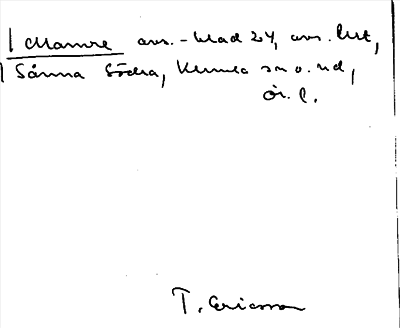 Mamre avs. - blad 24, avs. litt,
Sånna Södra, Kumla sn o. hd,
Ör. l.
T. Ericsson